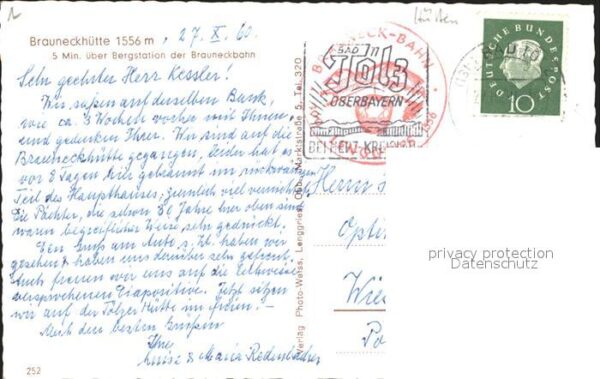 Hütten
Brauneckhütte 1556 m, 27. X. 60.
5 Min. über Bergstation der Brauneckbahn
Sehr geehrter Herr Kessler!
Wir saßen auf derselben Bank,
wie ca. 3 Wochen vorher mit Ihnen,
und gedenken Ihrer. Wir sind auf die
Brauneckhütte gegangen, leider hat es
vor 8 Tagen hier gebrannt im rückwärtigen
Teil des Haupthauses, ziemlich viel vernichtet.
Die Pächter, die schon 30 Jahre hier oben sind
waren begreiflicher Weise sehr gedrückt.
Den Gruß am Auto s. Zt. haben wir
gesehen & haben uns darüber sehr gefreut.
Auch freuen wir uns auf die
versprochenen Diapositive. Jetzt sitzen
wir auf der Tölzer Hütte im Freien. –
Mit den besten Grüßen
Ihre
Luise & Maria Redenbacher
252
Verlag Photo-Weiss, Lenggries, Obb., Marktstraße 5, Tel. 320
BRAUNECK-BAHN
BAD
Tölz
OBERBAYERN
1556
BAD TÖLZ
DEUTSCHE BUNDESPOST
10
Herrn
Opti
Wies
Po
privacy protection
Datenschutz